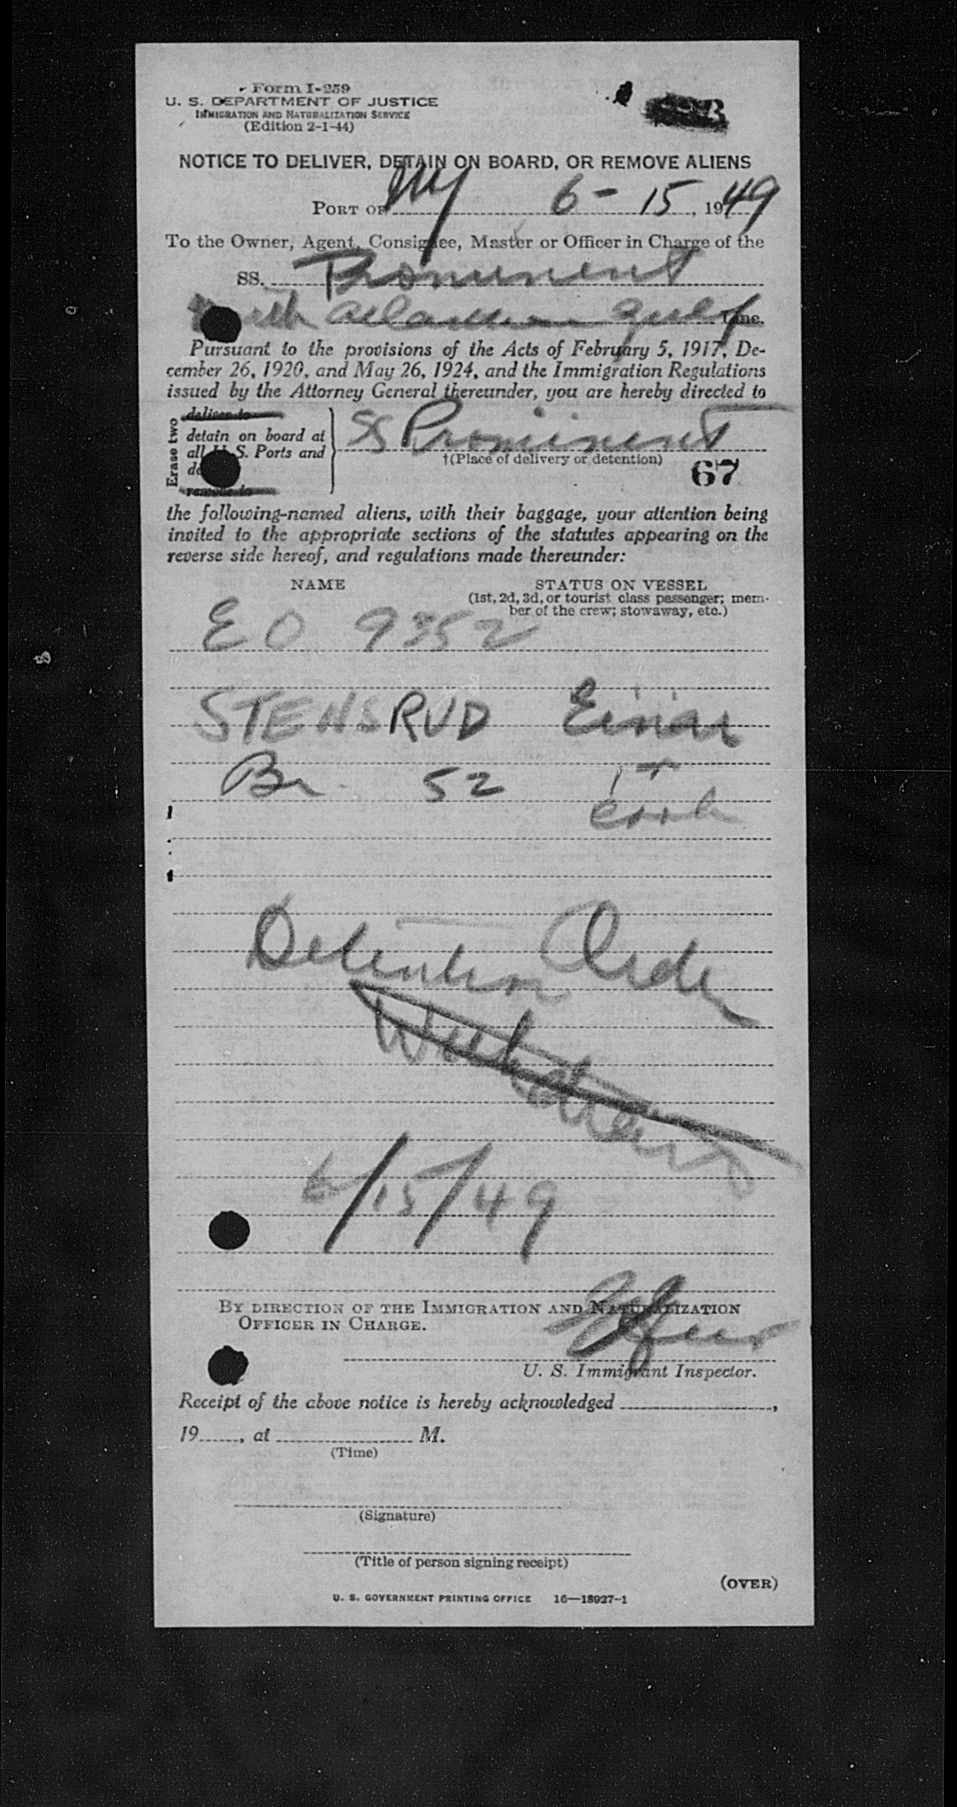 Form I-259
U. S. DEPARTMENT OF JUSTICE
IMMIGRATION AND NATURALIZATION SERVICE
(Edition 2-1-44)
NOTICE TO DELIVER, DETAIN ON BOARD, OR REMOVE ALIENS
PORT OF NY 6-15, 1949
To the Owner, Agent, Consignee, Master or Officer in Charge of the
SS. Prominent
North Atlantic & Gulf Line.
Pursuant to the provisions of the Acts of February 5, 1917, De-
cember 26, 1920, and May 26, 1924, and the Immigration Regulations
issued by the Attorney General thereunder, you are hereby directed to
Erase two
deliver to
detain on board at
all U. S. Ports and
remove to
SS Prominent
†(Place of delivery or detention)
67
the following-named aliens, with their baggage, your attention being
invited to the appropriate sections of the statutes appearing on the
reverse side hereof, and regulations made thereunder:
NAME STATUS ON VESSEL
(1st, 2d, 3d, or tourist class passenger; mem-
ber of the crew; stowaway, etc.)
EO 9352
STENSRUD Einar
Br. 52 1st
cook
Detention Order
Withdrawn
6/15/49
BY DIRECTION OF THE IMMIGRATION AND NATURALIZATION
OFFICER IN CHARGE.
U. S. Immigrant Inspector.
Receipt of the above notice is hereby acknowledged ,
19 , at M.
(Time)
(Signature)
(Title of person signing receipt)
(OVER)
U. S. GOVERNMENT PRINTING OFFICE 16—18927-1